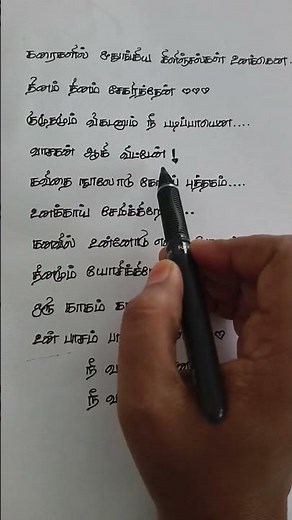 கரைகளில் ஒதுங்கிய கிளிஞ்சல்கள் உனக்கென..
தினம் தினம் சேகரித்தேன் ♡♡♡
குமுதமும் விகடனும் நீ படிப்பாயென....
வாசகன் ஆகி விட்டேன்!
கவிதை நூலோடு கோலப் புத்தகம்....
உனக்காய் சேமிக்கிறே..
கனவில் உன்னோடு
தினமும் யோசிக்கிறே
ஒரு காகம் கா
உன் பாசம் பா ♡♡
நீ வ
நீ வ